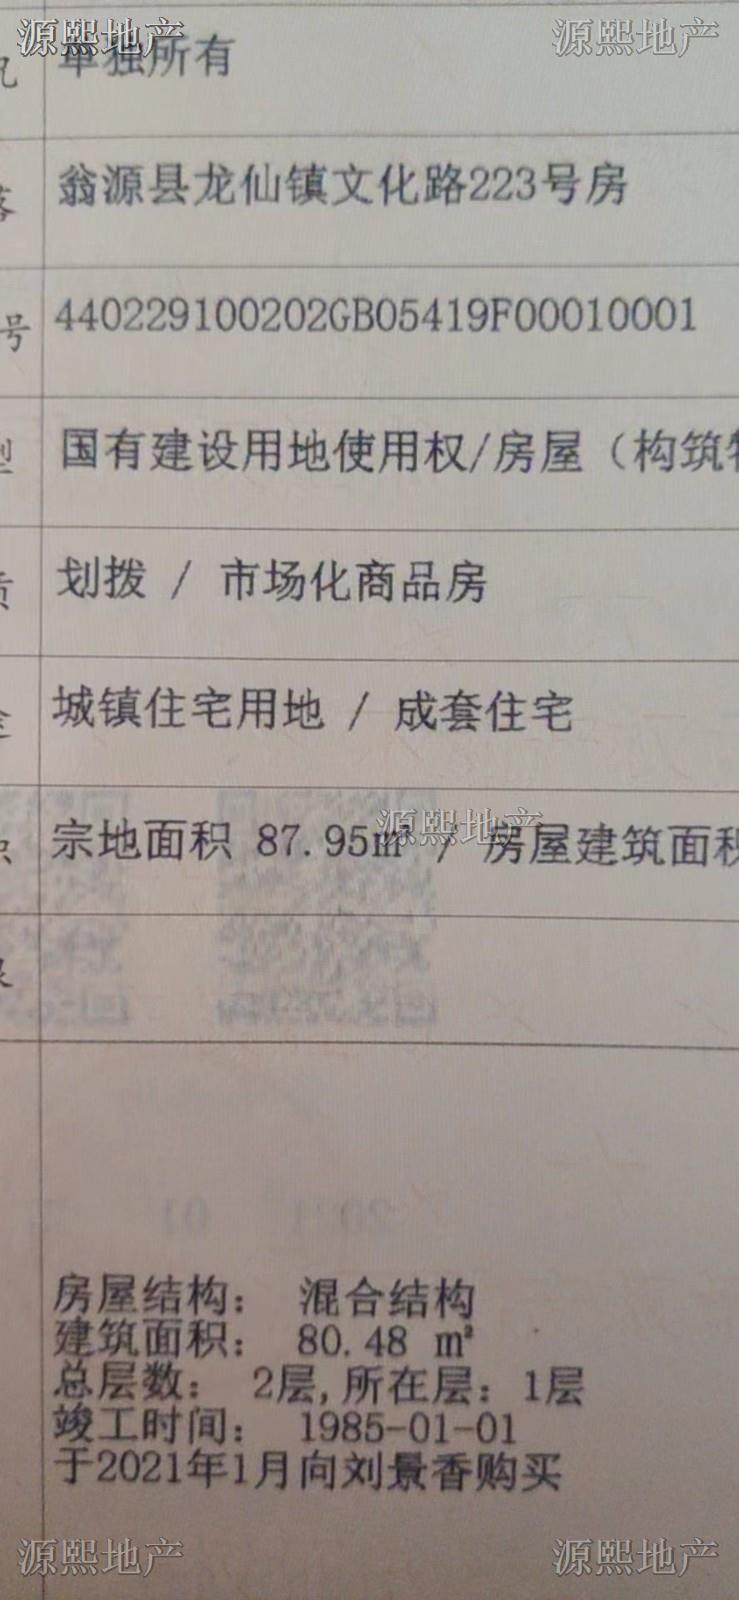 源熙地产
源熙地产
况 单独所有
落 翁源县龙仙镇文化路223号房
号 440229100202GB05419F00010001
型 国有建设用地使用权/房屋（构筑物
质 划拨 / 市场化商品房
途 城镇住宅用地 / 成套住宅
源熙地产
积 宗地面积 87.95㎡ / 房屋建筑面积
限
房屋结构： 混合结构
建筑面积： 80.48 ㎡
总层数： 2层,所在层：1层
竣工时间： 1985-01-01
于2021年1月向刘景香购买
源熙地产
源熙地产